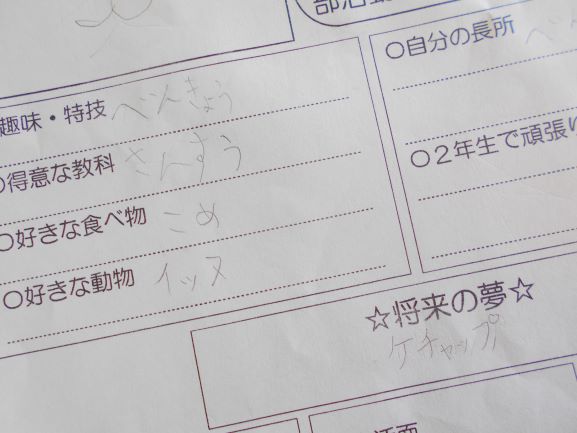 部活動
趣味・特技 べんきょう
○得意な教科 さんすう
○好きな食べ物 こめ
○好きな動物 イッヌ
○自分の長所 べん
○2年生で頑張り
☆将来の夢☆
ケチャップ